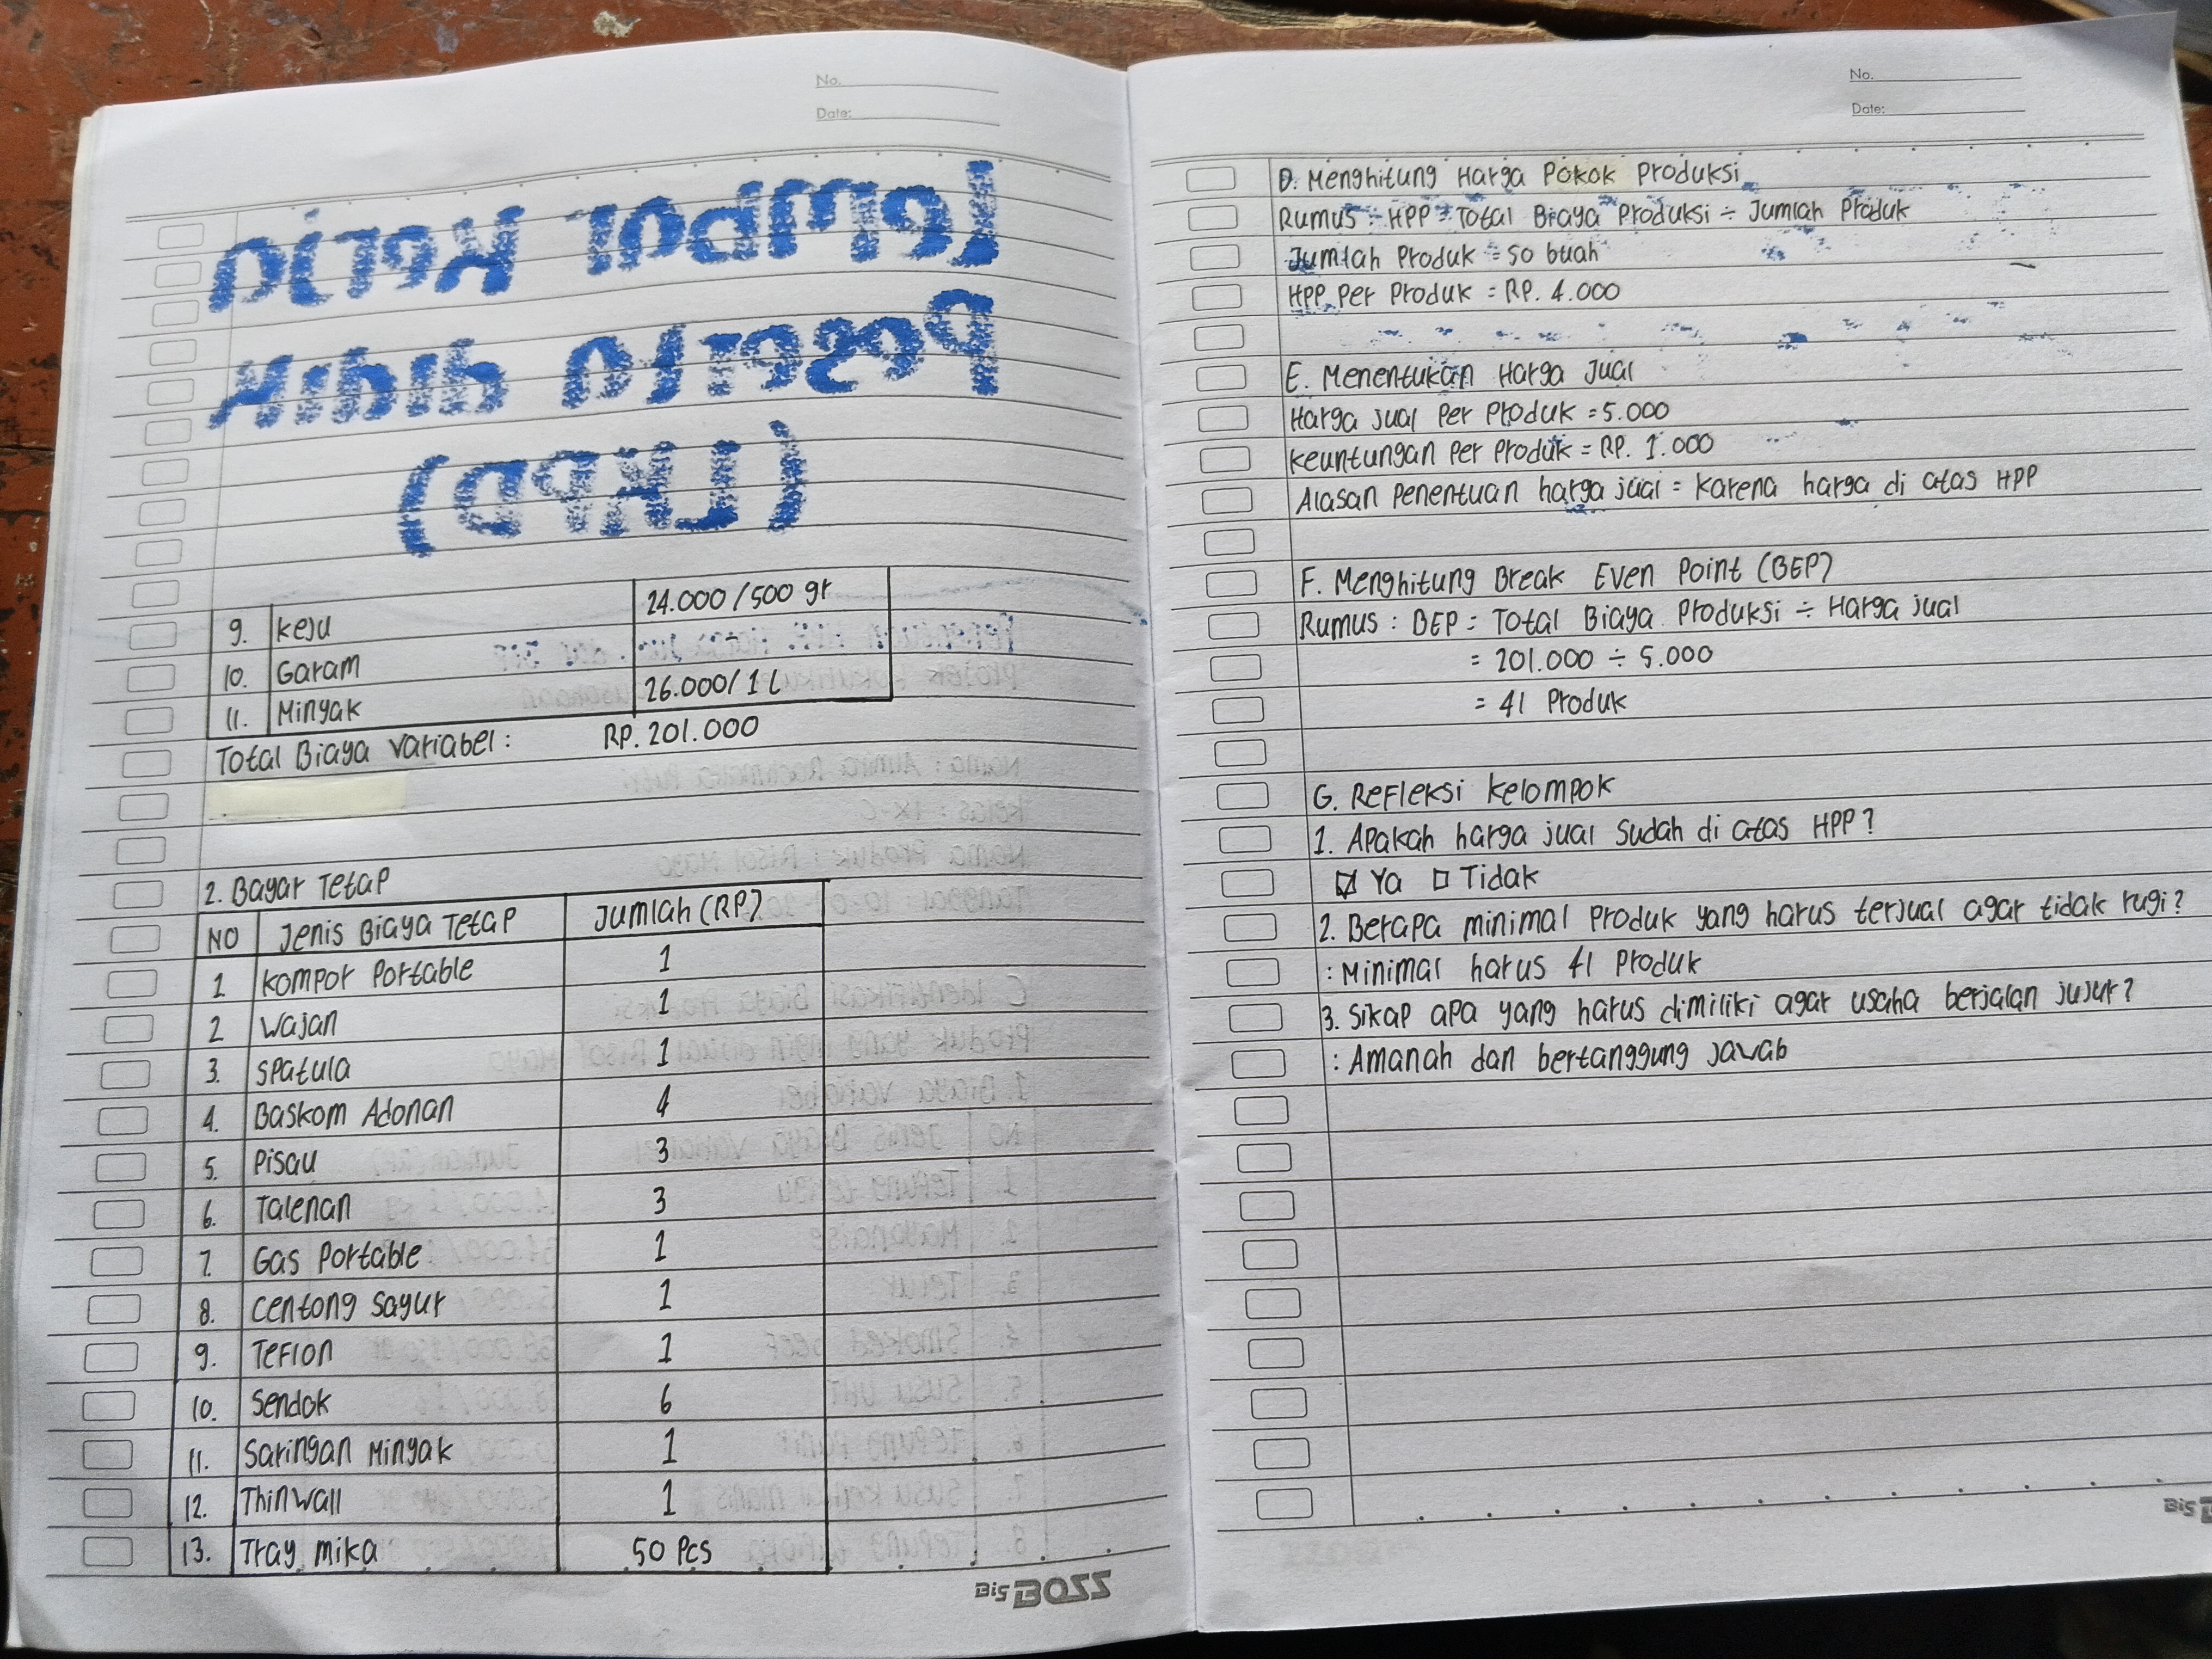 No.
Date:
Lembar Kerja
Peserta didik
(LKPD)
9. Keju 24.000/500 gr
10. Garam
11. Minyak 26.000/1 L
Total Biaya Variabel : RP. 201.000
2. Bayar Tetap
NO Jenis Biaya Tetap Jumlah (RP)
1 Kompor Portable 1
2 Wajan 1
3. Spatula 1
4. Baskom Adonan 4
5. Pisau 3
6. Talenan 3
7. Gas Portable 1
8. Centong Sayur 1
9. Teflon 1
10. Sendok 6
11. Saringan Minyak 1
12. Thinwall 1
13. Tray mika 50 Pcs
Big BOSS
No.
Date:
D. Menghitung Harga Pokok Produksi
Rumus : HPP = Total Biaya Produksi ÷ Jumlah Produk
Jumlah Produk = 50 buah
HPP Per Produk = RP. 4.000
E. Menentukan Harga Jual
Harga jual Per Produk = 5.000
Keuntungan Per Produk = RP. 1.000
Alasan Penentuan harga jual = Karena harga di atas HPP
F. Menghitung Break Even Point (BEP)
Rumus : BEP = Total Biaya Produksi ÷ Harga jual
= 201.000 ÷ 5.000
= 41 Produk
G. Refleksi Kelompok
1. Apakah harga jual Sudah di atas HPP?
☑ Ya ☐ Tidak
2. Berapa minimal Produk yang harus terjual agar tidak rugi?
: Minimal harus 41 Produk
3. Sikap apa yang harus dimiliki agar usaha berjalan jujur?
: Amanah dan bertanggung jawab
Big